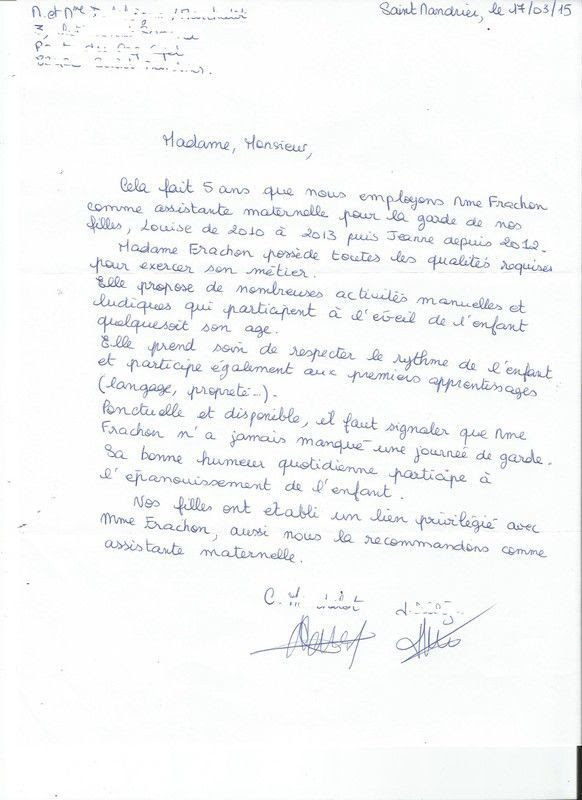 M. et Mme
Saint Mandrier, le 17/03/15
Madame, Monsieur,
Cela fait 5 ans que nous employons Mme Frachon
comme assistante maternelle pour la garde de nos
filles, Louise de 2010 à 2013 puis Jeanne depuis 2012.
Madame Frachon possède toutes les qualités requises
pour exercer son métier.
Elle propose de nombreuses activités manuelles et
ludiques qui participent à l'éveil de l'enfant
quelquesoit son age.
Elle prend soin de respecter le rythme de l'enfant
et participe également aux premiers apprentissages
(langage, propreté...).
Ponctuelle et disponible, il faut signaler que Mme
Frachon n'a jamais manqué une journée de garde.
Sa bonne humeur quotidienne participe à
l'épanouissement de l'enfant.
Nos filles ont établi un lien privilégié avec
Mme Frachon, aussi nous la recommandons comme
assistante maternelle.
C.